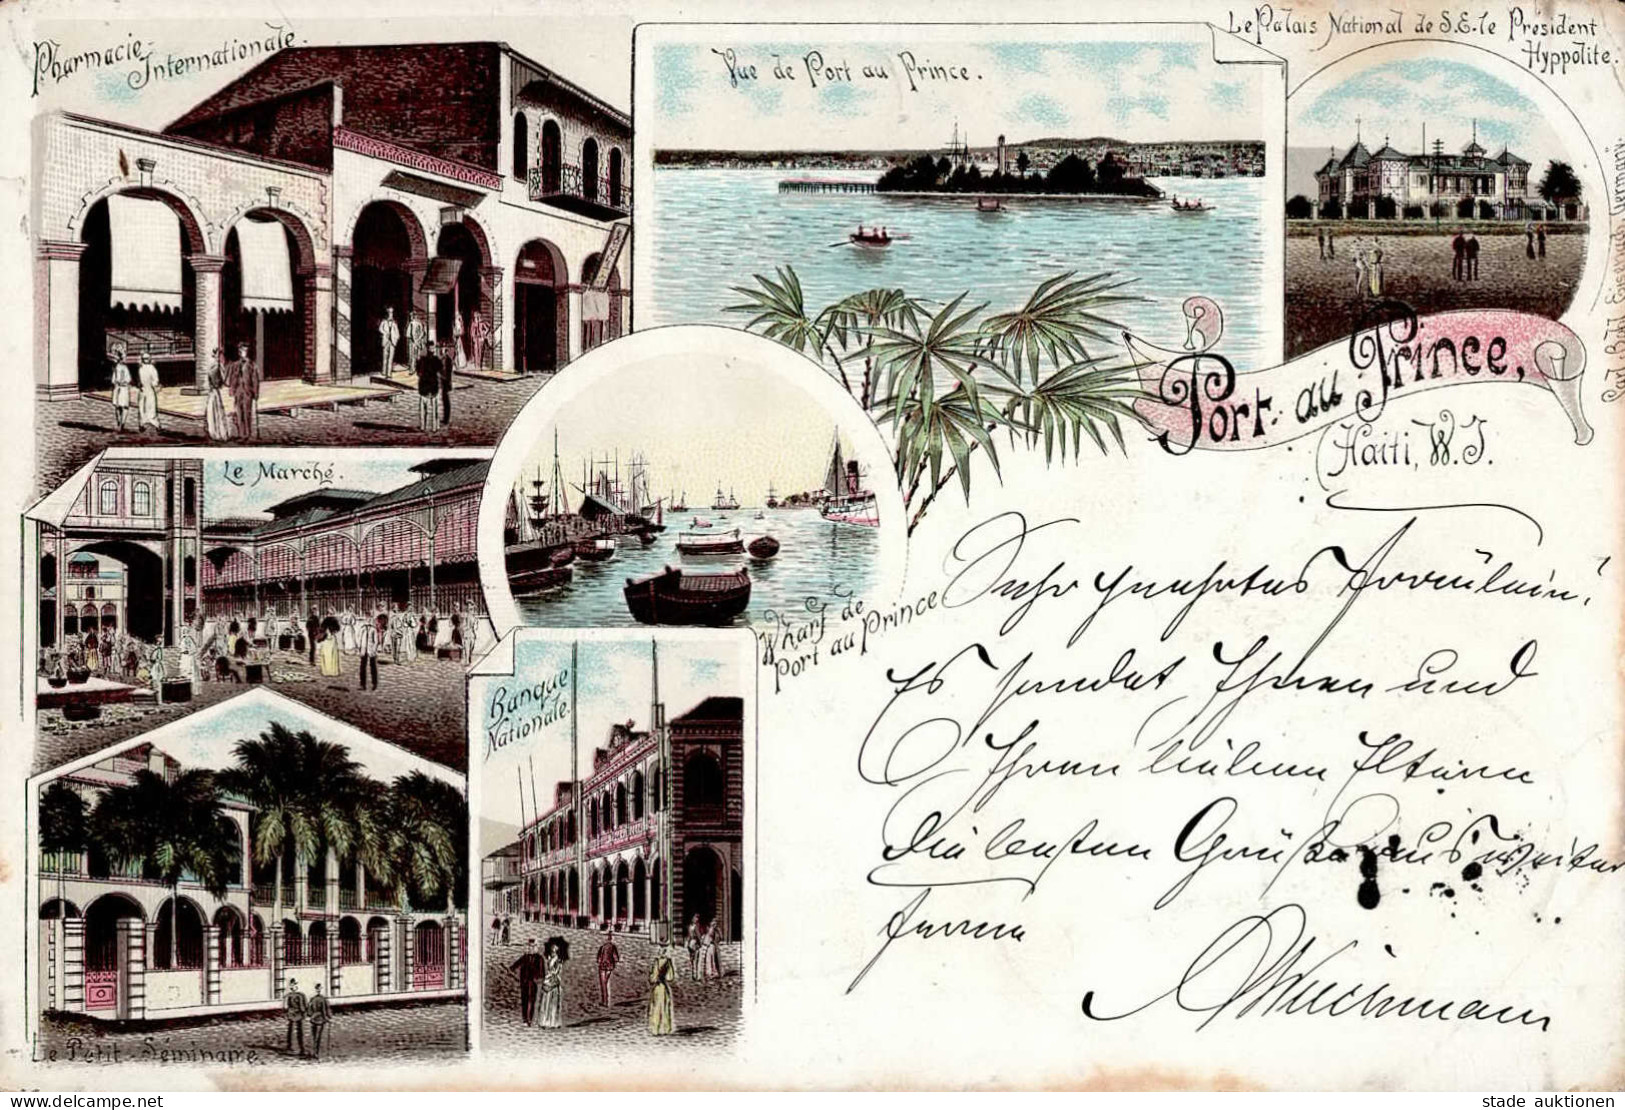 Pharmacie-
Internationale.
Vue de Port au Prince.
Le Palais National de S.E. le Président
Hyppolite.
Port-au Prince,
Haiti, W.I.
Le Marché.
Wharf de
Port au Prince
Banque
Nationale.
Le Petit-Séminaire.
Sehr geehrtes Fräulein!
Es sendet Ihnen und
Ihren lieben Eltern
die besten Grüße aus weiter
Ferne
delcampe.net
stade auktionen